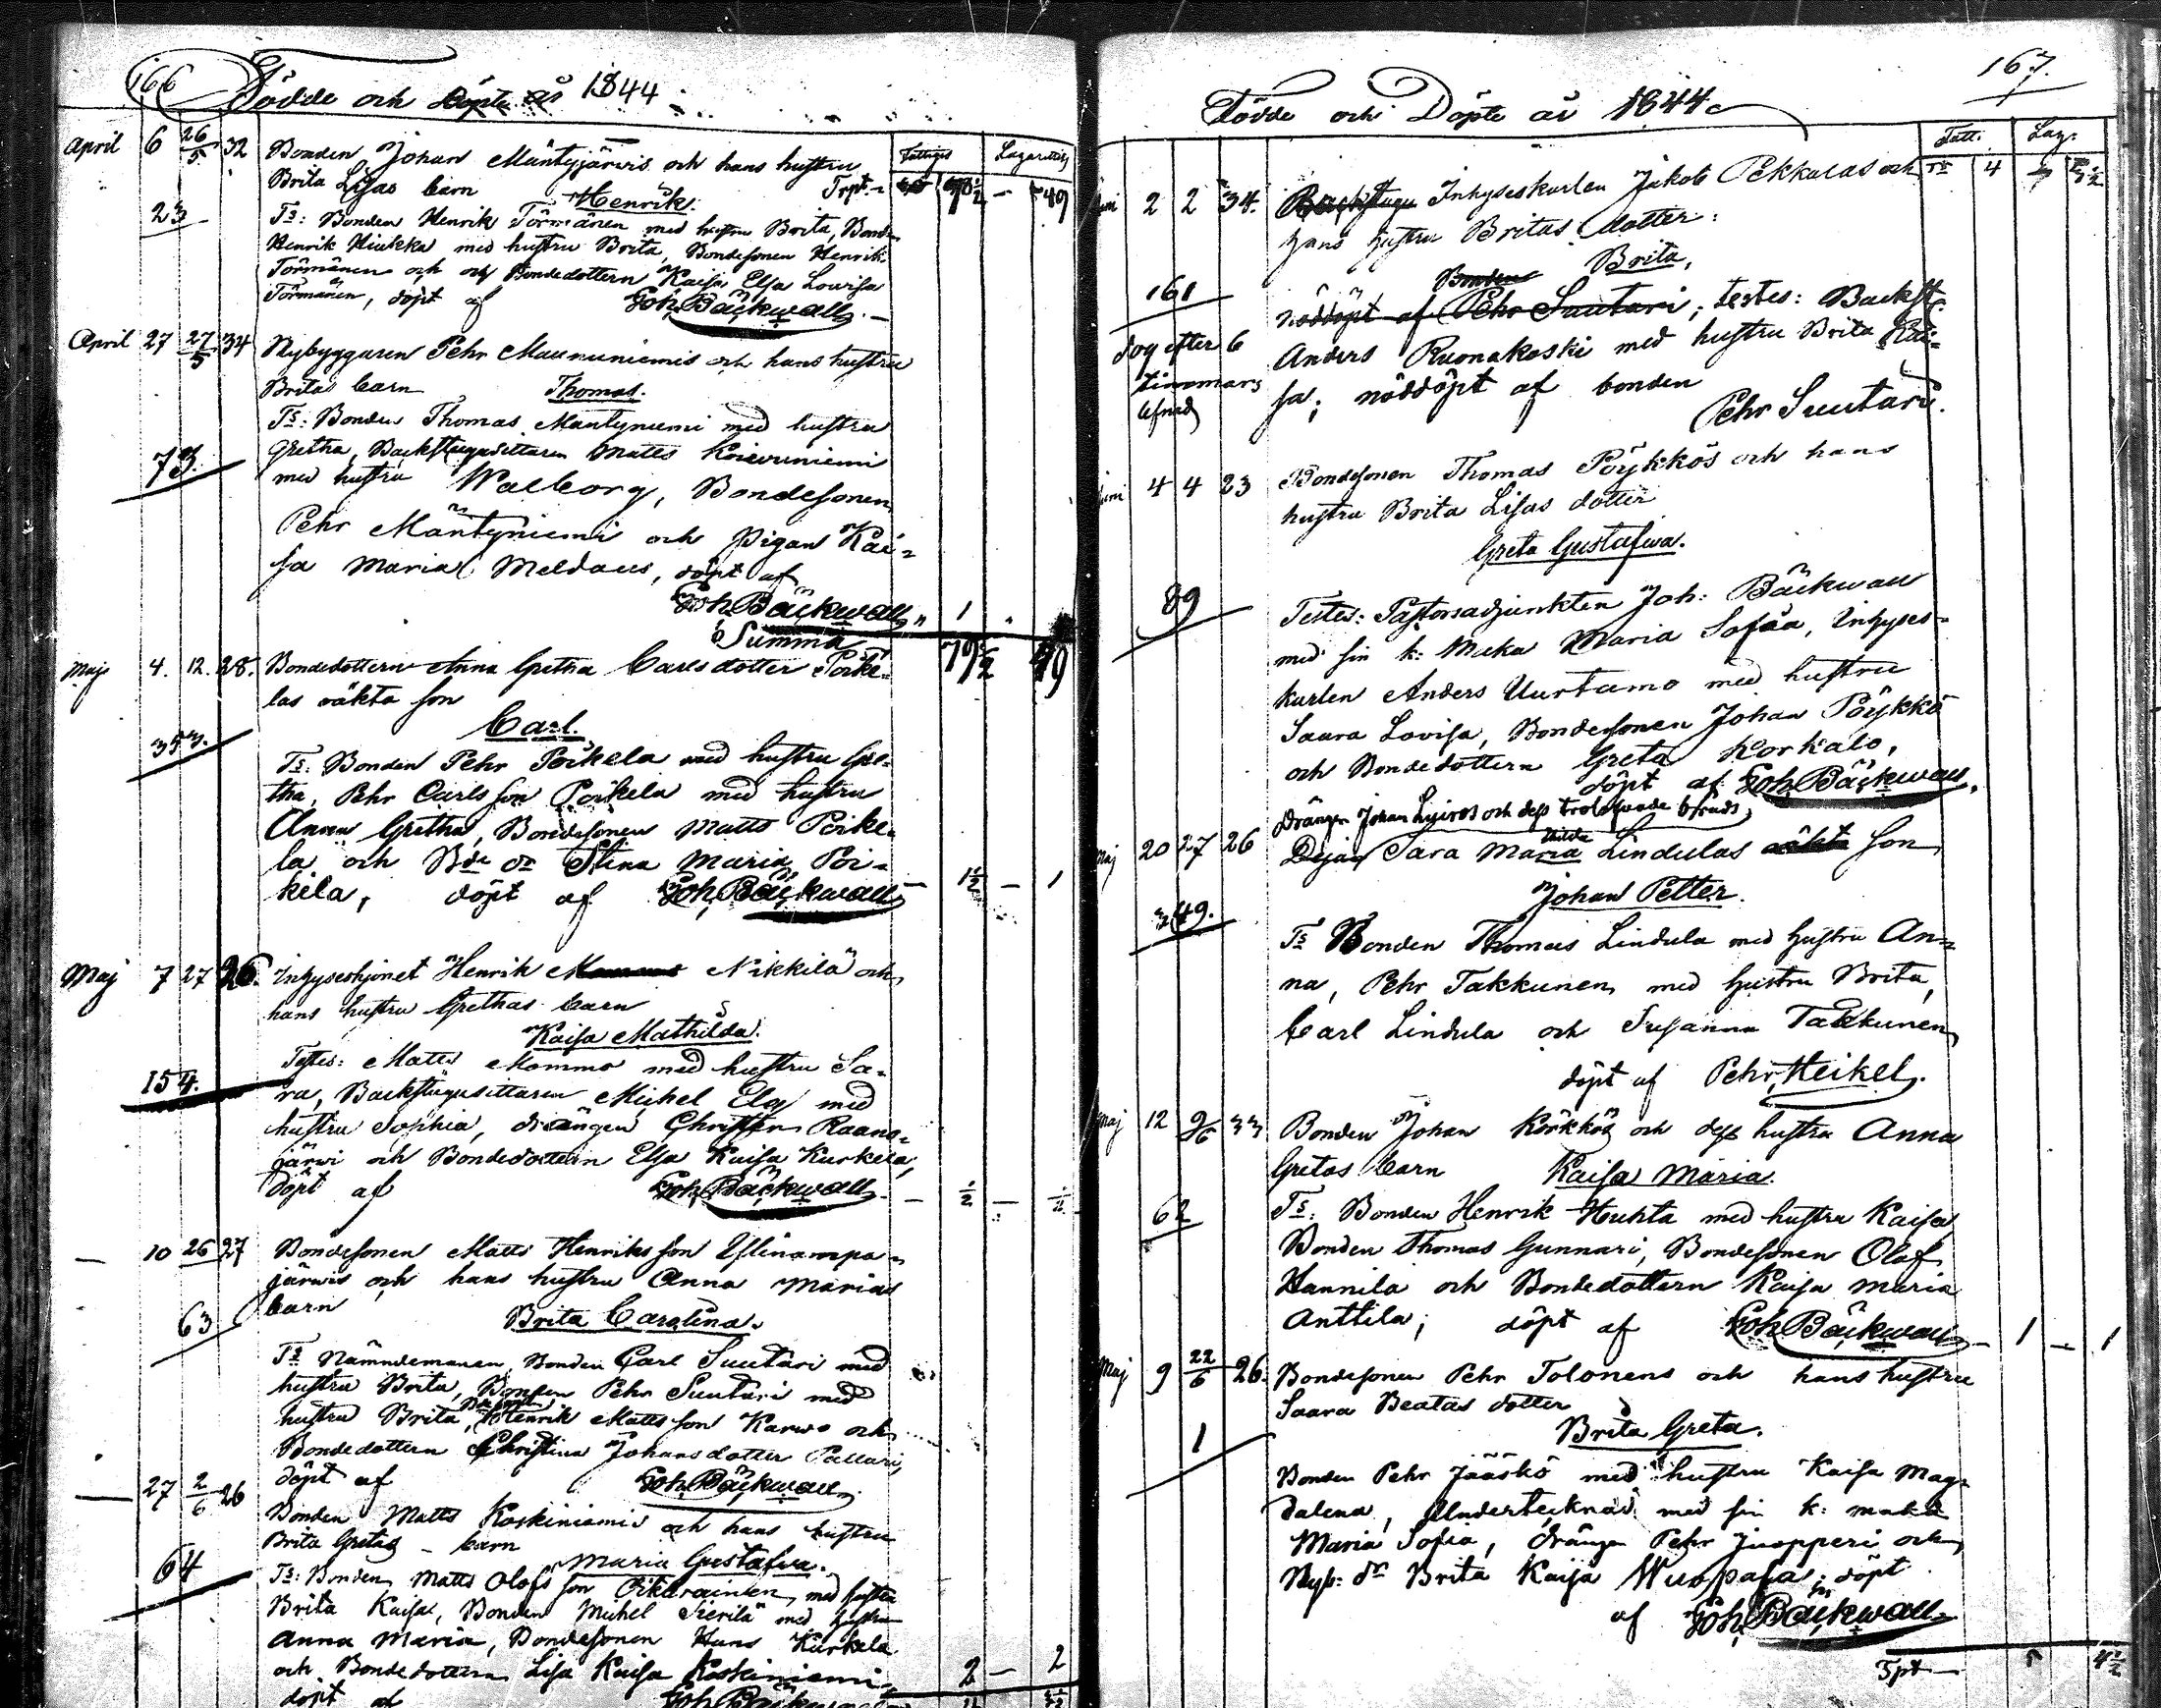 166 Födde och Döpte år 1844
Fattiges Lazarettet
April 6 26/5 32 Bonden Johan Mäntyjärwis och hans hustru
Brita Lisas barn Henrik. Trpt.
23 Ts: Bonden Henrik Törmänen med hustru Brita, Bonden
Henrik Hiukka med hustru Brita, Bondesonen Henrik
Törmänen och Bondedottern Kaisa Elsa Lowisa
Törmänen, döpt af Joh. Bäckwall.
April 27 27/5 34 Nybyggaren Pehr Maununiemis och hans hustru
Britas barn Thomas.
Ts: Bonden Thomas Mäntyniemi med hustru
73. Gretha, Backstugusittaren Matts Koivuniemi
med hustru Walborg, Bondesonen
Pehr Mäntyniemi och Pigan Kai-
sa Maria Meldaus, döpt af
Joh. Bäckwall " 1 "
Summa 79 1/2 49
Maji 4. 12. 28. Bondedottern Anna Gretha Carlsdotter Poike-
las oäkta son
Carl.
353. Ts: Bonden Pehr Poikela med hustru Gre-
tha, Pehr Carlsson Poikela med hustru
Anna Gretha, Bondesonen Matts Poike-
la och Bde dr Stina Maria Poi-
kela, döpt af Joh. Bäckwall — 1 1/2 — 1
Maj 7 27 26. Inhyseshjonet Henrik Nikkilä och
hans hustru Grethas barn
Kaisa Mathilda.
154. Testes: Matts Mommo med hustru Sa-
ra, Backstugusittaren Michel Ela med
hustru Sophia, drängen Christer Raana-
järwi och Bondedottern Elsa Kaisa Kurkela,
döpt af Joh. Bäckwall — 1/2 — 1/2
— 10 26 27 Bondesonen Matts Henriksson Ylinampa-
järwis och hans hustru Anna Marias
63 barn Brita Carolina.
Ts Nämndemannen Bonden Carl Suutari med
hustru Brita, Bonden Pehr Suutari med
hustru Brita, Henrik Mattsson Karwo och
Bondedottern Christina Johansdotter Pallari,
döpt af Joh. Bäckwall
— 27 2/6 26 Bonden Matts Koskiniemis och hans hustru
Brita Gretas - barn
64 Maria Gustafwa.
Ts: Bonden Matts Olofsson Oikarainen, med hustru
Brita Kaisa, Bonden Michel Sierilä med hustru
Anna Maria, Bondesonen Hans Kurkela
och Bondedottern Lisa Kaisa Koskiniemi 2 — 2
döpt af Joh. Bäckwall
167.
Födde och Döpte år 1844
Fatt: Laz:
Juni 2 2 34. Inhyseskarlen Jakob Pekkalas och Tr 4
hans hustru Britas dotter:
Brita,
161 nöddöpt af Pehr Suutari; testes: Backst:
dog efter 6 Anders Ruonakoski med hustru Brita Kai-
timmars sa; nöddöpt af bonden
lefnad Pehr Suutari.
Juni 4 4 23 Bondesonen Thomas Pöykkös och hans
hustru Brita Lisas dotter
Greta Gustafwa.
89 Testes: Pastorsadjunkten Joh: Bäckwall
med sin k: Maka Maria Sofia, Inhyses-
karlen Anders Uurtamo med hustru
Saara Lovisa, Bondesonen Johan Pöykkö
och Bondedottern Greta Korkalo,
döpt af Joh. Bäckwall.
Drängen Johan och dess trolofwade bruds
Maj 20 27 26 Dejan Sara Maria Lindulas oäkta son
Johan Petter.
349. Ts Bonden Thomas Lindula med hustru An-
na, Pehr Takkunen, med hustru Brita,
Carl Lindula och Susanna Takkunen,
döpt af Pehr Heikel.
Maj 12 9/6 33 Bonden Johan Körkkös och dess hustru Anna
Gretas barn Kaisa Maria.
62 Ts: Bonden Henrik Huhta med hustru Kaisa,
Bonden Thomas Gunnari, Bondesonen Olof
Hannila och Bondedottern Kaisa Maria
Anttila; döpt af Joh. Bäckwall — 1 — 1
Maj 9 22/6 26. Bondesonen Pehr Tolonens och hans hustru
Saara Beatas dotter
Brita Greta.
1 Bonden Pehr Jääskö med hustru Kaisa Mag-
dalena, Undertecknad med sin k: maka
Maria Sofia, drängen Pehr Juopperi och
Nyb: dr Brita Kaisa Wuopala; döpt
af Joh. Bäckwall
Trpt — 5 4 1/2